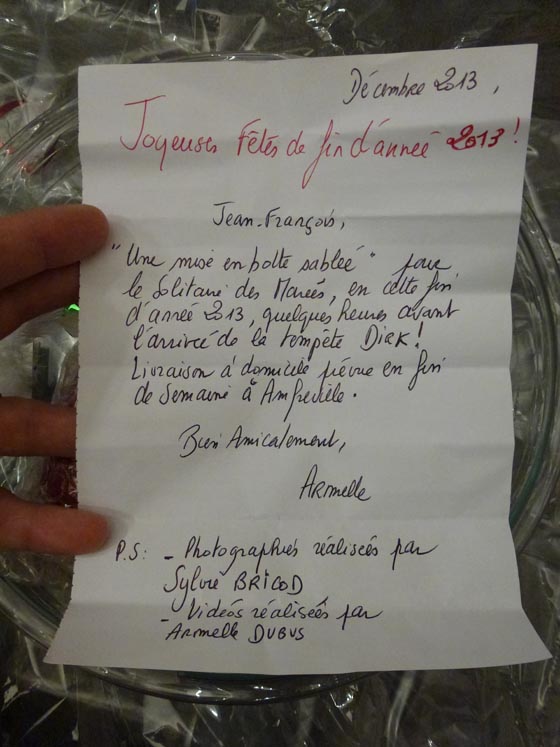 Décembre 2013,
Joyeuses Fêtes de fin d'année 2013 !
Jean-François,
"Une mise en boîte sablée" pour
le Solitaire des Marées, en cette fin
d'année 2013, quelques heures avant
l'arrivée de la tempête Dirk !
Livraison à domicile prévue en fin
de semaine à Amfreville.
Bien Amicalement,
Armelle
P.S: - Photographies réalisées par
Sylvie BRICOD
- Vidéos réalisées par
Armelle DUBUS